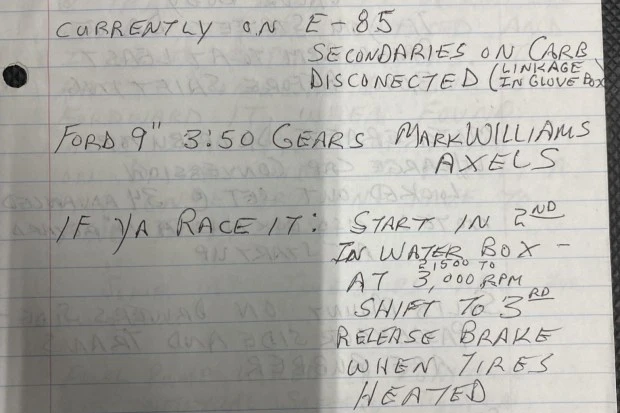 CURRENTLY ON E-85
SECONDARIES ON CARB
DISCONECTED (LINKAGE IN GLOVE BOX)
FORD 9" 3:50 GEARS MARK WILLIAMS
AXELS
IF YA RACE IT: START IN 2ND
IN WATER BOX -
2,500 TO
AT 3,000 RPM
SHIFT TO 3RD
RELEASE BRAKE
WHEN TIRES
HEATED